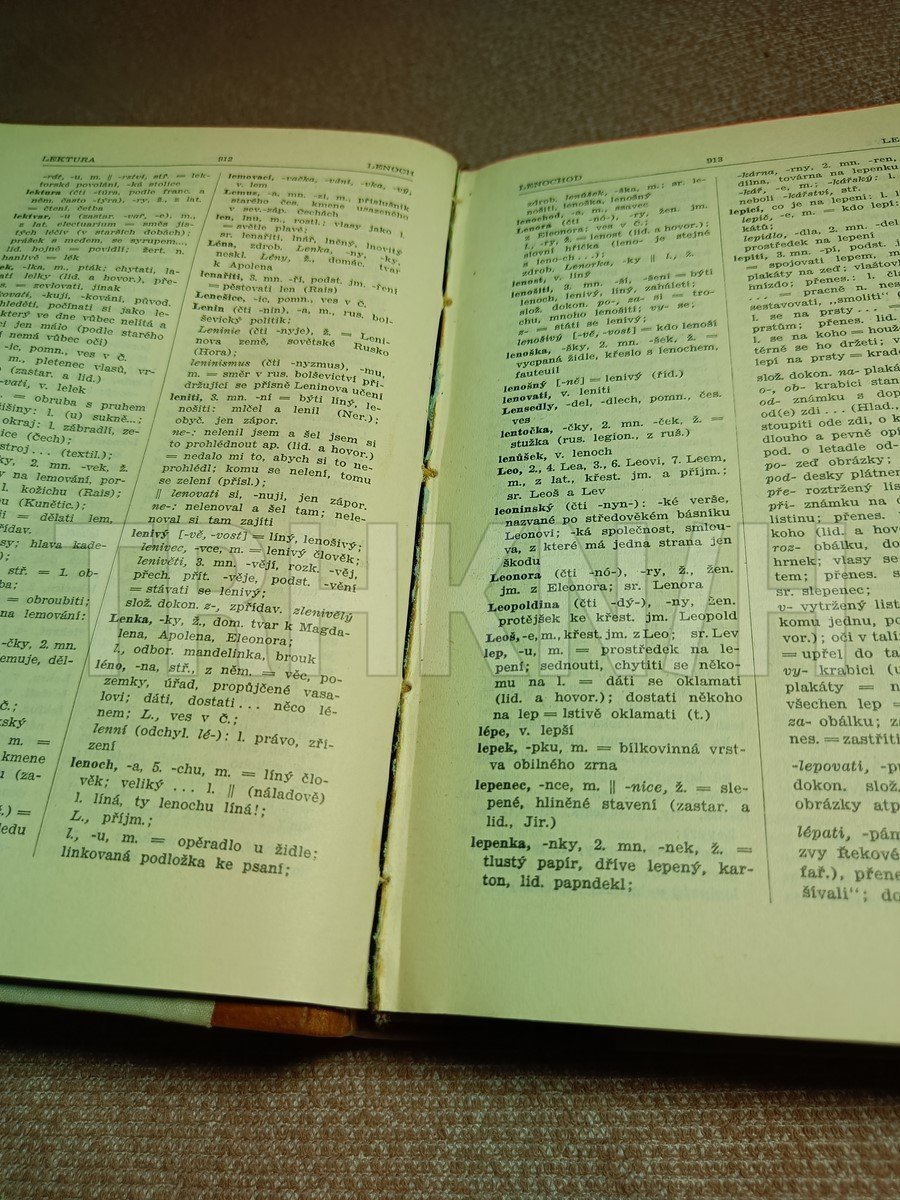 LEKTURA 912 LENOCH
-rdř, -u, m. || -rství, stř. = lek-
torské povolání, -ká stolice
lektura (čti -túra, podle franc. a
něm. často -týra), -ry, ž., z lat.
= čtení, četba
lektvar, -u (zastar. -vař, -e), m.,
z lat. electuarium = směs jis-
tých léčiv (v starších dobách);
prášek s medem, se syrupem...,
lid. hojně = povidli; žert. n.
hanlivě = lék
-lka, m., pták; chytati, la-
lelky (lid. a hovor.), pře-
= zevlovati, jinak
-kuji, -kování, původ.
počínati si jako le-
který ve dne vůbec nelítá a
jen málo (podle starého
nemá vůbec očí)
-ic, pomn., ves v Č.
m., pletenec vlasů, vr-
(zastar. a lid.)
v. lelek
= obruba s pruhem
l. (u) sukně...;
okraj: l. zábradlí, ze-
(Čech);
(textil.);
2. mn. -vek, ž.
na lemování, por-
l. kožichu (Rais);
(Kunětic.);
= dělati lem,
hlava kade-
stř. = 1. ob-
= obroubiti;
na lemování:
-čky, 2. mn.
děl-
Č.;
m. =
kmene
(za-
=
lemovací, -vačka, -vání, -vka, -vý,
v. lem
Lemus, -a, mn. -zi, m., příslušník
starého čes. kmene usazeného
v sev.-záp. Čechách
len, lnu, m., rostl.; vlasy jako l.
= světle plavé;
sr. lenařiti, lnář, lněný, lnovitý
Léna, zdrob. Lenka, -ny, -ky,
neskl. Lény, ž., domác. tvar
k Apolena
lenařiti, 3. mn. -ří, podst. jm. -ření
= pěstovati len (Rais)
Lenešice, -ic, pomn., ves v Č.
Lenin (čti -nín), -a, m., rus. bol-
ševický politik;
Leninie (čti -nyje), ž. = Leni-
nova země, sovětské Rusko
(Hora);
leninismus (čti -nyzmus), -mu,
m. = směr v rus. bolševictví při-
držující se přísně Leninova učení
leniti, 3. mn. -ní = býti líný, le-
nošiti: mlčel a lenil (Ner.);
obyč. jen zápor.
ne-: nelenil jsem a šel jsem si
to prohlédnout ap. (lid. a hovor.)
= nedalo mi to, abych si to ne-
prohlédl; komu se nelení, tomu
se zelení (přísl.);
|| lenovati si, -nuji, jen zápor.
ne-: nelenoval a šel tam; nele-
noval si tam zajíti
lenivý [-vě, -vost] = líný, lenošivý;
lenivec, -vce, m. = lenivý člověk;
lenivěti, 3. mn. -vějí, rozk. -věj,
přech. přít. -věje, podst. -vění
= stávati se lenivý;
slož. dokon. z-, zpřídav. zlenivělý
Lenka, -ky, ž., dom. tvar k Magda-
lena, Apolena, Eleonora;
l., odbor. mandelinka, brouk
léno, -na, stř., z něm. = věc, po-
zemky, úřad, propůjčené vasa-
lovi; dáti, dostati... něco lé-
nem; L., ves v Č.;
lenní (odchyl. lé-): l. právo, zří-
zení
lenoch, -a, 5. -chu, m. = líný člo-
věk; veliký ... l. || (náladově)
l. líná, ty lenochu líná!;
L., příjm.;
l., -u, m. = opěradlo u židle;
linkovaná podložka ke psaní;
LENOCHOD 913 LE
zdrob. lenůšek, -ška, m.; sr. le-
nošiti, lenoška, lenošný
lenochod, -a, m., ssavec
Lenora (čti -nó-), -ry, žen. jm.
z Eleonora; ves v Č.;
l., -ry, ž. = lenost (lid. a hovor.);
slovní hříčka (leno- je stejné
s leno-ch ...);
zdrob. Lenorka, -ky || l., ž.
lenost, v. líný
lenošiti, 3. mn. -ší, -šení = býti
lenoch, lenivý, líný, zaháleti;
slož. dokon. po-, za- si = tro-
chu, mnoho lenošiti; vy- se;
z- = státi se lenivý;
lenošivý [-vě, -vost] = kdo lenoší
lenoška, -šky, 2. mn. -šek, ž. =
vycpaná židle, křeslo s lenochem,
fauteuil
lenošný [-ně] = lenivý (říd.)
lenovati, v. leniti
Lensedly, -del, -dlech, pomn., čes.
ves
lentočka, -čky, 2. mn. -ček, ž. =
stužka (rus. legion., z ruš.)
lenůšek, v. lenoch
Leo, 2., 4. Lea, 3., 6. Leovi, 7. Leem,
m., z lat., křest. jm. a příjm.;
sr. Leoš a Lev
leoninský (čti -nyn-): -ké verše,
nazvané po středověkém básníku
Leonovi; -ká společnost, smlou-
va, z které má jedna strana jen
škodu
Leonora (čti -nó-), -ry, ž., žen.
jm. z Eleonora; sr. Lenora
Leopoldina (čti -dý-), -ny, žen.
protějšek ke křest. jm. Leopold
Leoš, -e, m., křest. jm. z Leo; sr. Lev
lep, -u, m. = prostředek na le-
pení; sednouti, chytiti se něko-
mu na l. = dáti se oklamati
(lid. a hovor.); dostati někoho
na lep = lstivě oklamati (t.)
lépe, v. lepší
lepek, -pku, m. = bílkovinná vrst-
va obilného zrna
lepenec, -nce, m. || -nice, ž. = sle-
pené, hliněné stavení (zastar. a
lid., Jir.)
lepenka, -nky, 2. mn. -nek, ž. =
tlustý papír, dříve lepený, kar-
ton, lid. papndekl;
-kárna, -rny, 2. mn. -ren,
dílna, továrna na lepenku
-kář, -e, m.; -kářský: l.
neboli -kářství, stř.
lepicí, co je na lepení: l.
lepič, -e, m. = kdo lepí:
kátů;
lepidlo, -dla, 2. mn. -del
prostředek na lepení
lepiti, 3. mn. -pí, podst. j
= spojovati lepem, m
plakáty na zeď; vlaštov
hnízdo; přenes.: l. člá
... = pracně n. nes
sestavovati, „smoliti“
l. se na prsty ...
prstům; přenes. lid.
l. se na koho = houž
těrně se ho držeti; v
lepí na prsty = krade
slož. dokon. na- plaká
o-, ob- krabici stan
od- známku s dop
od(e) zdi ... (Hlad.,
stoupiti ode zdi, o k
dlouho a pevně opí
pod. o letadle od-
po- zeď obrázky;
pod- desky plátner
pře- roztržený list
při- známku na d
listinu; přenes.
koho (lid. a hovo
roz- obálku, do
hrnek; vlasy se
tem; přenes. s
sr. slepenec;
v- vytržený list
komu jednu, po
vor.); oči v talí
= upřel do ta
vy- krabici (u
plakáty = n
všechen lep =
za- obálku; z
nes. = zastříti
-lepovati, -pu
dokon. slož.
obrázky atp
lépati, -pám
zvy řtekové
fař.), přene
šívali“; do